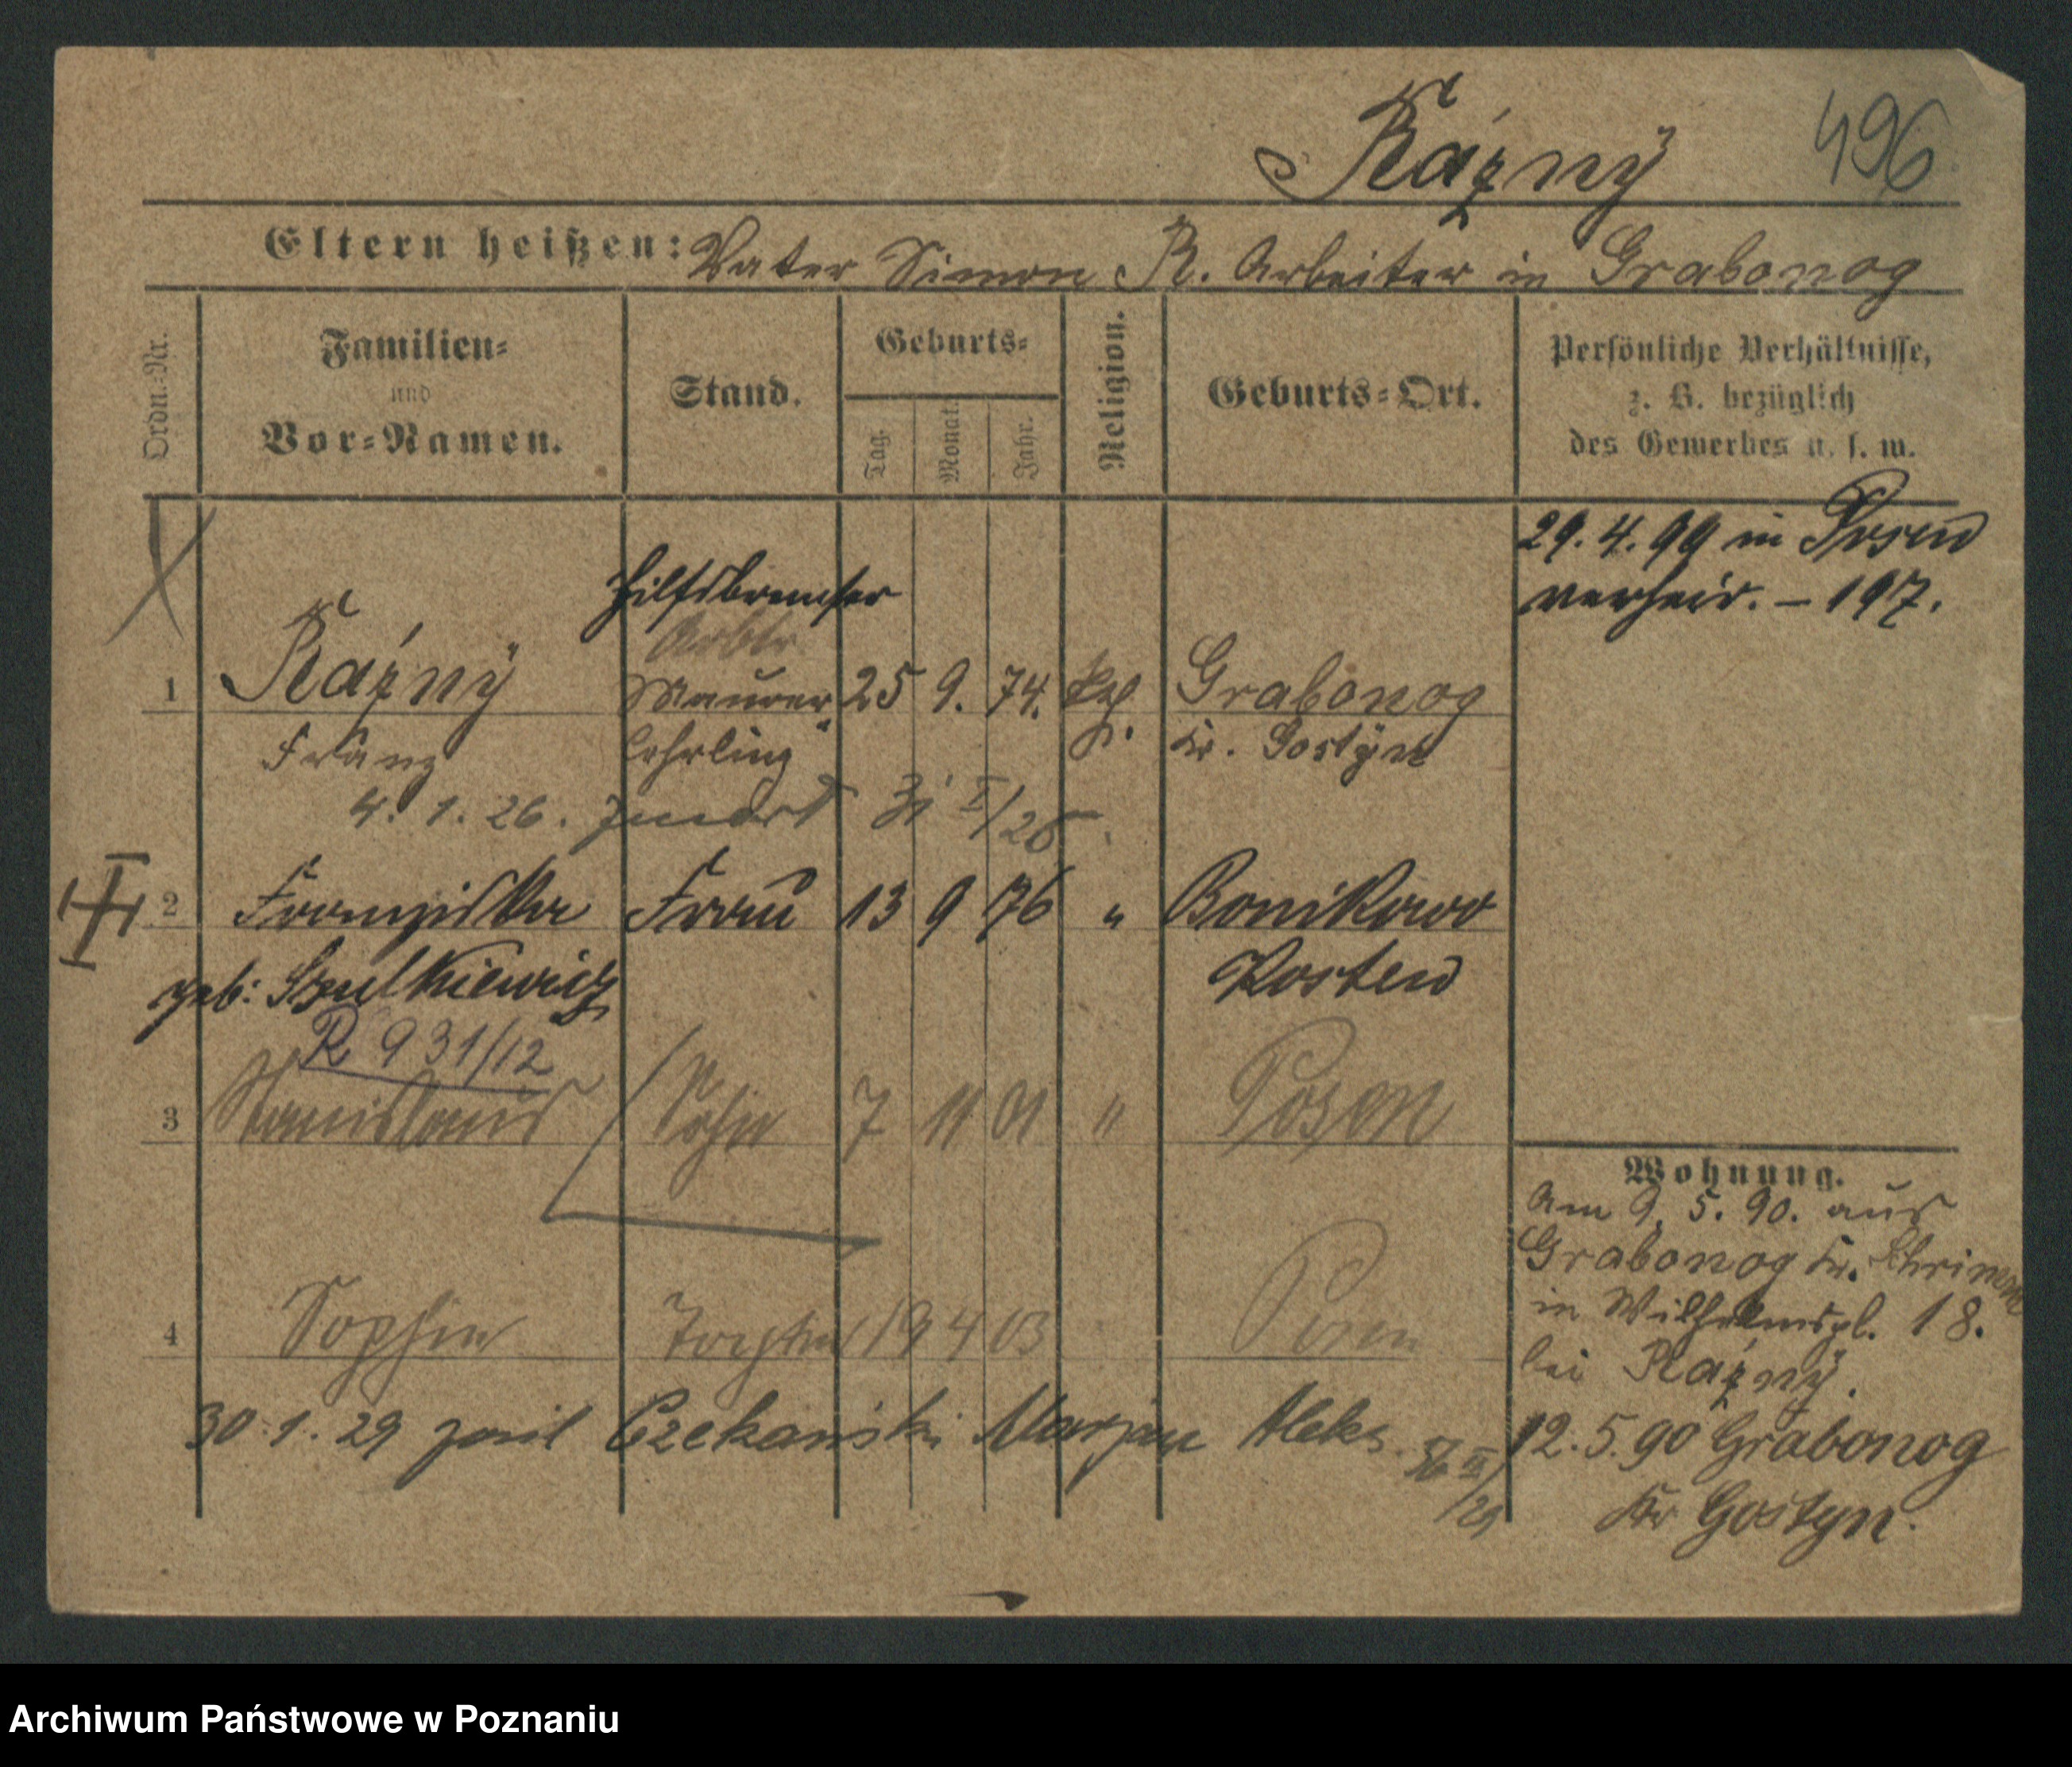 Rázny 496
Eltern heißen: Vater Simon R. Arbeiter in Grabonog
Ordn.-Nr.
Familien-
und
Vor-Namen.
Stand.
Geburts-
Tag.
Monat.
Jahr.
Religion.
Geburts-Ort.
Persönliche Verhältnisse,
z. B. bezüglich
des Gewerbes u. s. w.
29. 4. 99 in Posen
verheir. – 197.
Hilfsbremser
Arbtr.
1 Rázny Maurer 25 9. 74. Grabonog
Franz Lehrling Kr. Gostyn
4. 1. 26. 31 I/26
2 Franziska Frau 13 9 76 " Bonikowo
geb: Szulkiewicz Kosten
R 931/12
3 Stanislaus Sohn 7 11 01 " Posen
4 Sophie Tochter 19 4 03 Posen
30. 1. 29 Czekański Marjan Aleks.
/29
Wohnung.
Am 9. 5. 90. aus
Grabonog Kr. Schrimm
in Wilhelmspl. 18.
bei Rázny.
12. 5. 90 Grabonog
Kr Gostyn.
Archiwum Państwowe w Poznaniu